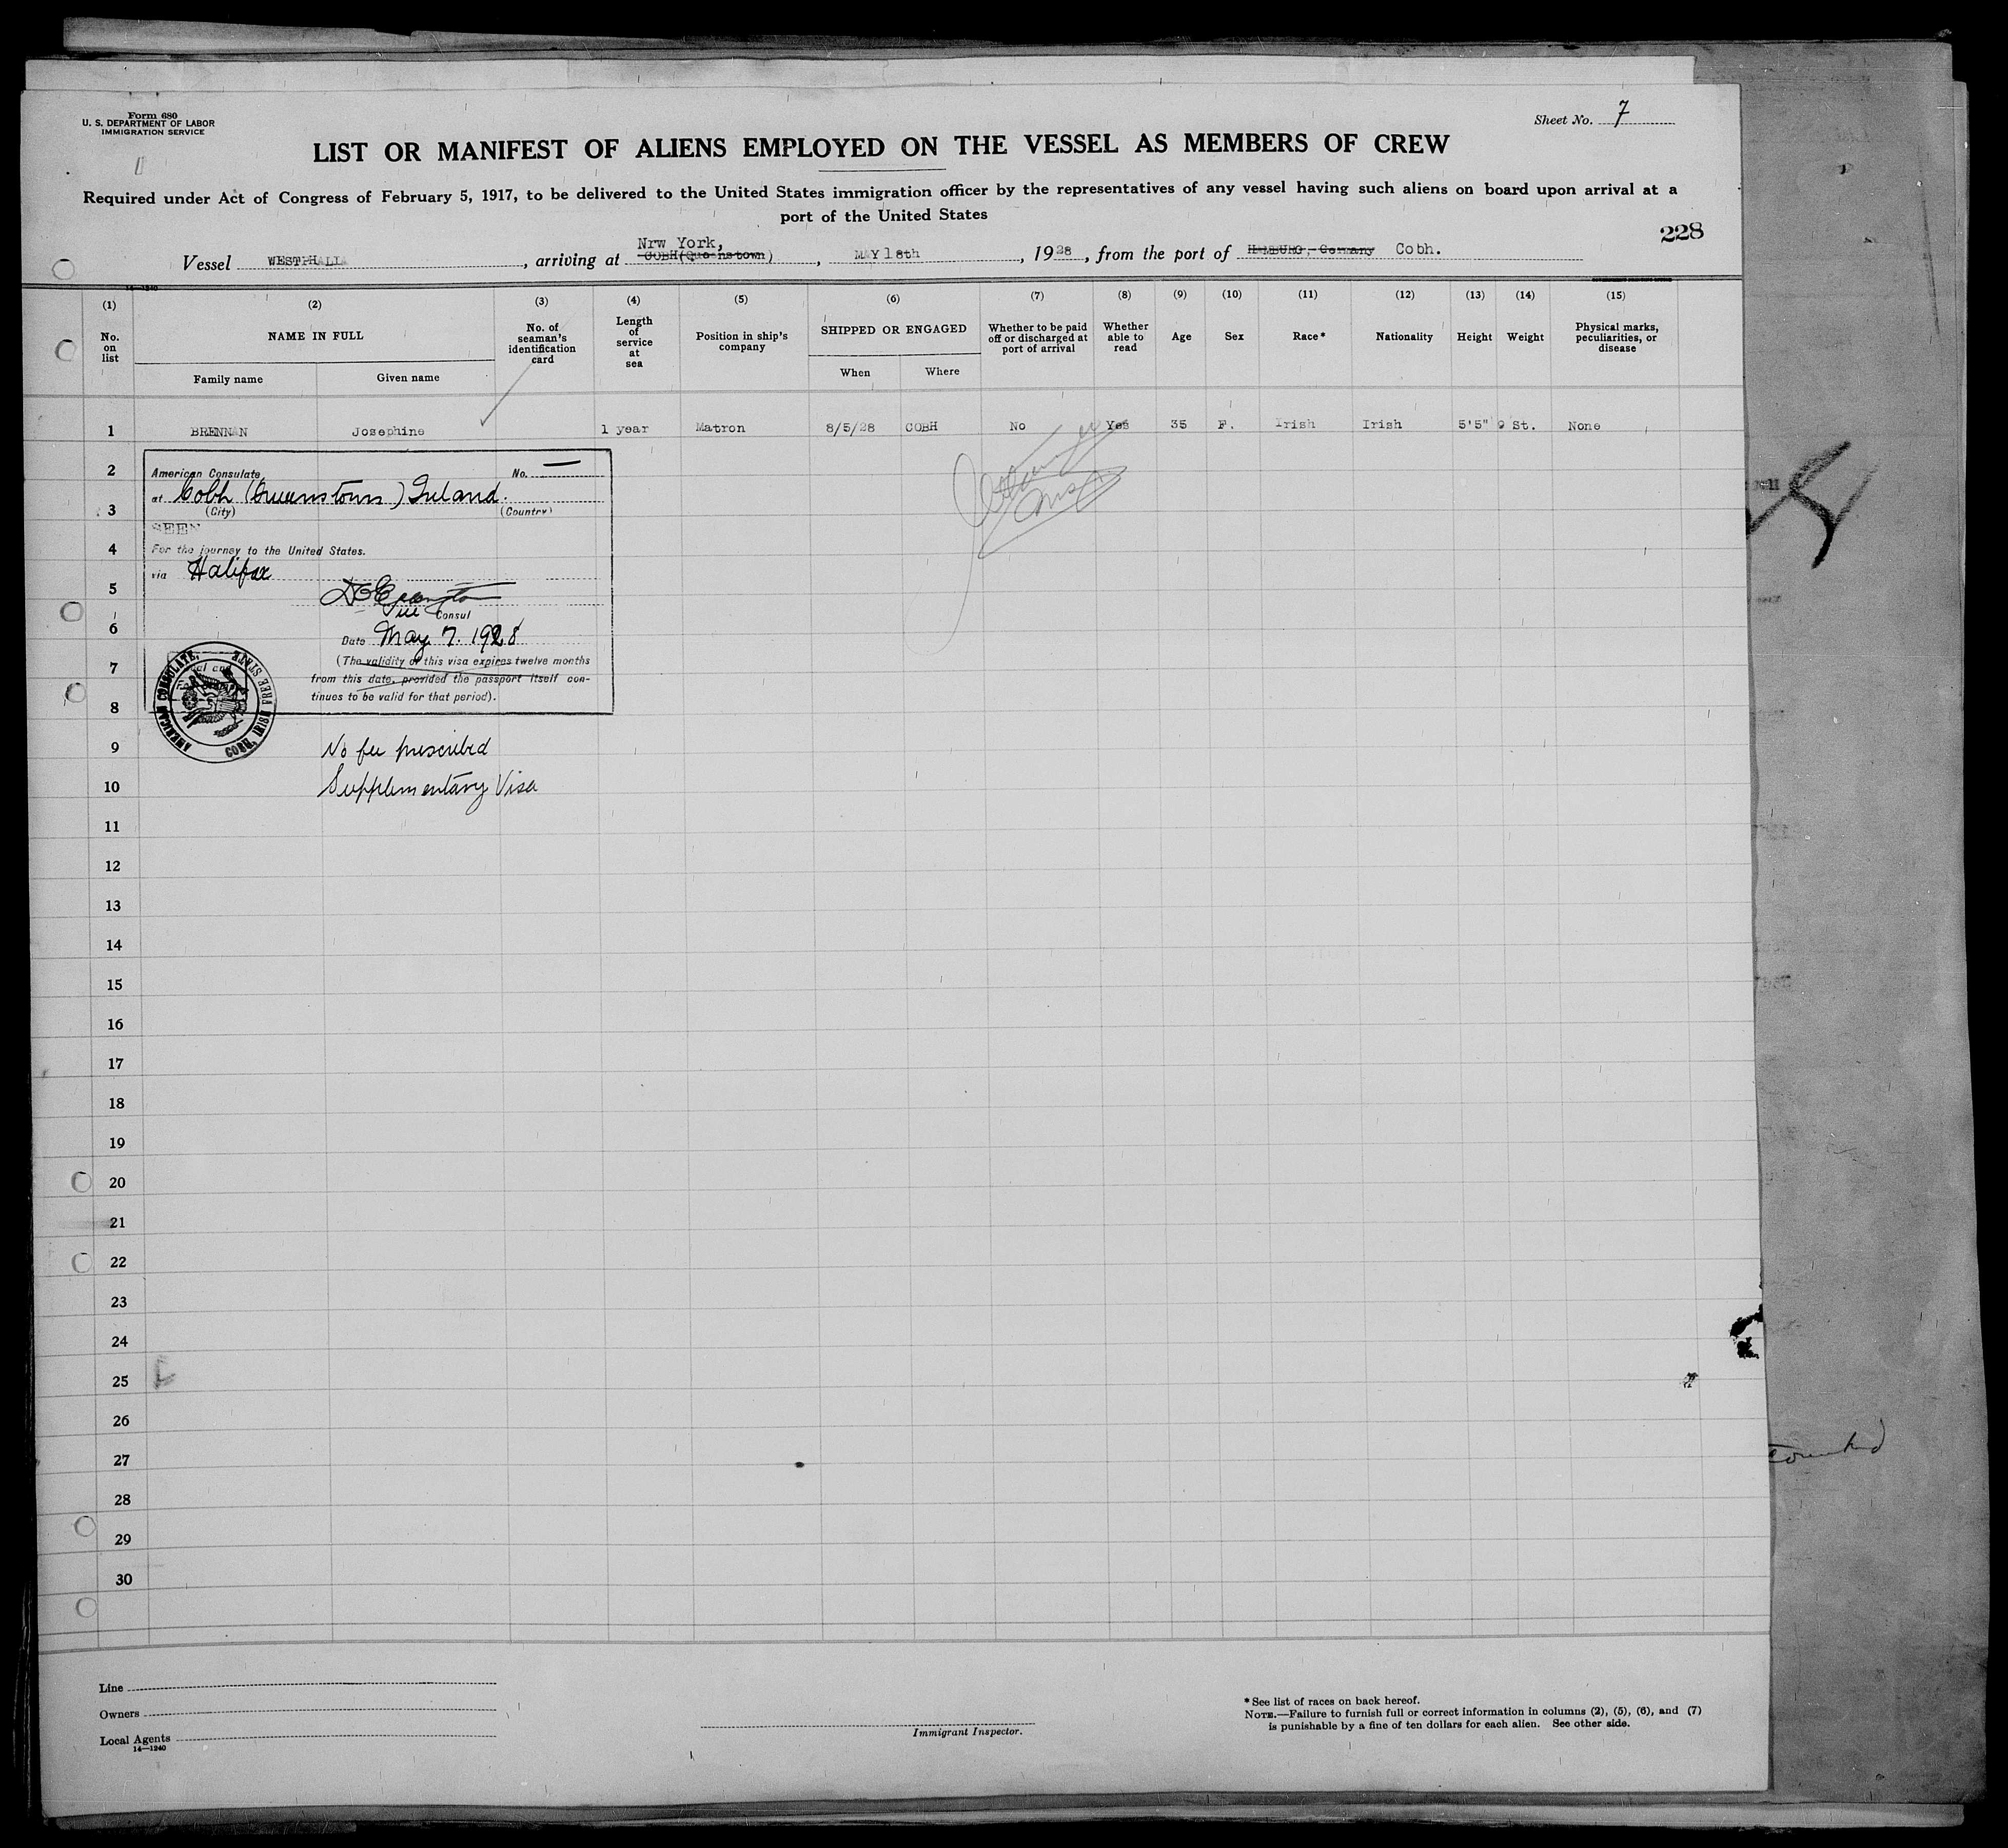 Form 680
U. S. DEPARTMENT OF LABOR
IMMIGRATION SERVICE
Sheet No. 7
LIST OR MANIFEST OF ALIENS EMPLOYED ON THE VESSEL AS MEMBERS OF CREW
Required under Act of Congress of February 5, 1917, to be delivered to the United States immigration officer by the representatives of any vessel having such aliens on board upon arrival at a
port of the United States
228
Nrw York,
Vessel WESTPHALIA, arriving at COBH(Queenstown), MAY 18th, 1928, from the port of HAMBURG, Germany Cobh.
14—1240
(1) (2) (3) (4) (5) (6) (7) (8) (9) (10) (11) (12) (13) (14) (15)
No. on list
NAME IN FULL
Family name Given name
No. of seaman's identification card
Length of service at sea
Position in ship's company
SHIPPED OR ENGAGED
When Where
Whether to be paid off or discharged at port of arrival
Whether able to read
Age
Sex
Race*
Nationality
Height
Weight
Physical marks, peculiarities, or disease
1 BRENNAN Josephine 1 year Matron 8/5/28 COBH No Yes 35 F. Irish Irish 5'5" 9 St. None
2
3
4
5
6
7
8
9
10
11
12
13
14
15
16
17
18
19
20
21
22
23
24
25
26
27
28
29
30
American Consulate No. —
at Cobh (Queenstown) Ireland.
(City) (Country)
SEEN
For the journey to the United States.
via Halifax
Vice Consul
Date May 7. 1928
(The validity of this visa expires twelve months
from this date, provided the passport itself con-
tinues to be valid for that period).
AMERICAN CONSULATE,
COBH, IRISH FREE STATE
No fee prescribed
Supplementary Visa
Line
Owners
Local Agents
14—1240
Immigrant Inspector.
* See list of races on back hereof.
NOTE.—Failure to furnish full or correct information in columns (2), (5), (6), and (7)
is punishable by a fine of ten dollars for each alien. See other side.